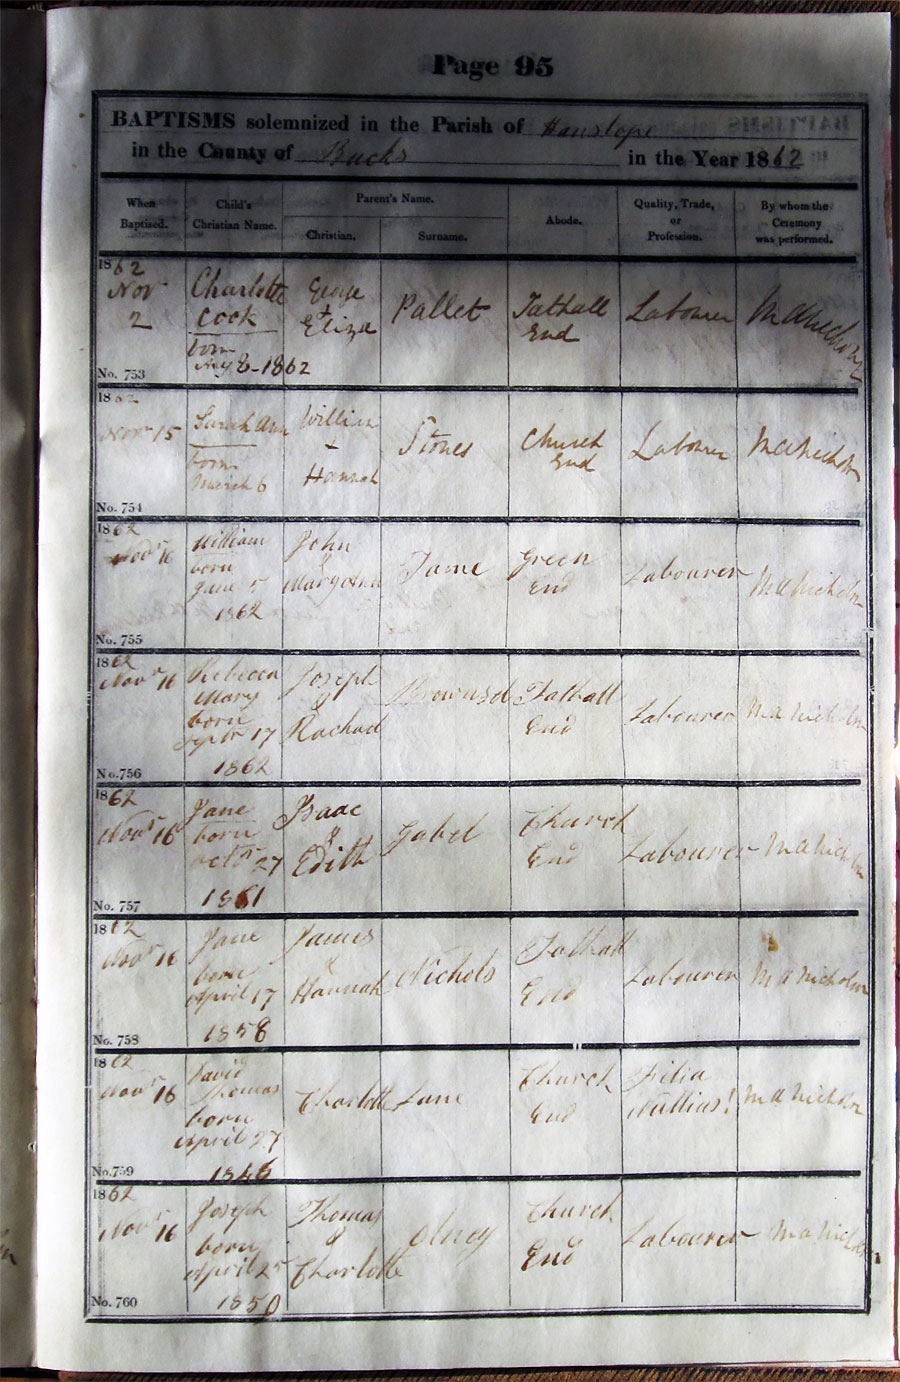 Page 95
BAPTISMS solemnized in the Parish of Hanslope
in the County of Bucks in the Year 1862
When Baptised.
Child's Christian Name.
Parent's Name.
Christian.
Surname.
Abode.
Quality, Trade, or Profession.
By whom the Ceremony was performed.
1862
Nov
2
No. 753
Charlotte
Cock
born
8-1862
George
+
Eliza
Pallet
Tathall
End
Labourer
1862
Novr 15
No. 754
Sarah Ann
born
March 6
William
-
Hannah
Stones
Church
End
Labourer
M A Nicholson
1862
Novr 16
No. 755
William
born
June 5
1862
John
&
Mary Ann
Tame
Green
End
Labourer
M A Nicholson
1862
Novr 16
No. 756
Rebecca
Mary
born
Septr 17
1862
Joseph
&
Rachael
Tathall
End
Labourer
M A Nicholson
1862
Novr 16
No. 757
Jane
born
Octr 27
1861
Isaac
&
Edith
Church
End
Labourer
M A Nicholson
1862
Novr 16
No. 758
Jane
born
April 17
1858
James
&
Hannah
Nichols
Tathall
End
Labourer
M A Nicholson
1862
Novr 16
No. 759
David
Thomas
born
April 27
1846
Charlotte
Lane
Church
End
Filia
Nullius!
M A Nicholson
1862
Novr 16
No. 760
Joseph
born
April 25
1850
Thomas
&
Charlotte
Olney
Church
End
Labourer
M A Nicholson